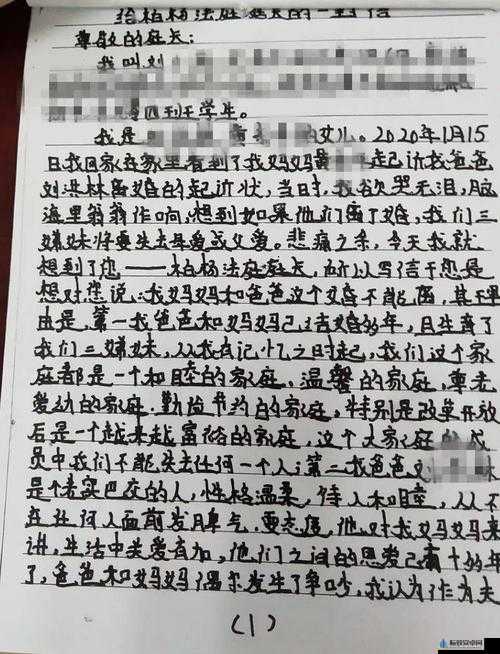 给柏杨法庭庭长的一封信
尊敬的庭长:
我叫刘
四班学生。
我是 的女儿。2020年1月15
日我回家在家里看到了我妈妈 起诉我爸爸
刘洪林离婚的起诉状,当时,我欲哭无泪,脑
海里翁翁作响,想到如果他们离了婚,我们三
姊妹将要失去母爱或父爱。悲痛之余,今天我就
想到了您——柏杨法庭庭长,所以写信于您是
想对您说:我妈妈和爸爸这个婚不能离,其理
由是,第一我爸爸和妈妈已结婚 年,且生育了
我们三姊妹,从我有记忆之日起,我们这个家
庭都是一个和睦的家庭,温馨的家庭,尊老
爱幼的家庭,勤俭节约的家庭,特别是改革开放
后是一个越来越富裕的家庭,这个大家庭的成
员中我们不能失去任何一个人;第二我爸爸
是个老实巴交的人,性格温柔,待人和睦,从不
在任何人面前发脾气,耍态度,他对我妈妈来
讲,生活中关爱有加,他们之间的恩爱已有十 年
了,爸爸和妈妈偶尔发生了争吵,我认为作为夫
(1)